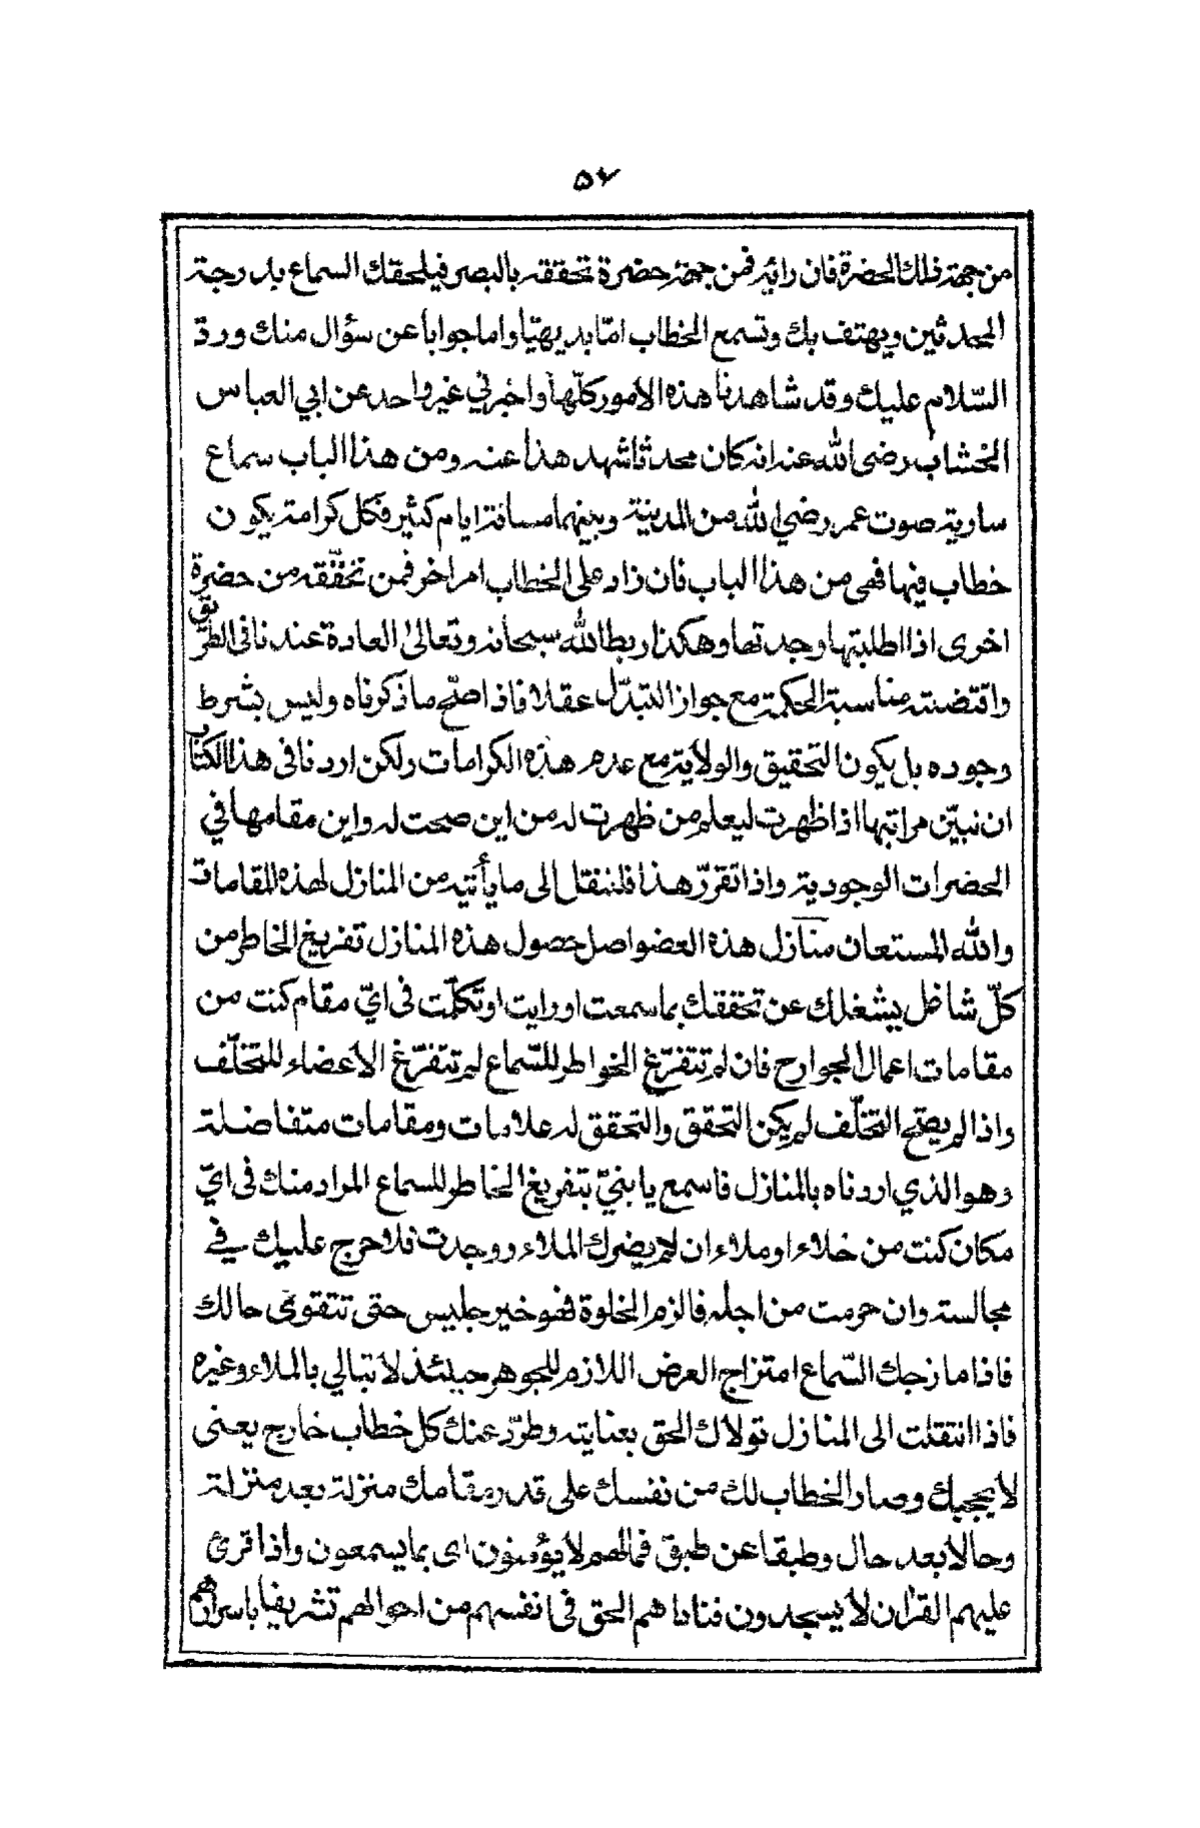 ٥٦
من جهته فلك الحضرة فان رائيه فمن جهة حضرة تحققه بالبصر فيلحقك السماع بدرجة
المحدثين ويهتف بك وتسمع الخطاب امّا بديهيّا واما جوابا عن سؤال منك ورد
السّلام عليك وقد شاهدنا هذه الامور كلّها واخبرني غير واحد عن ابي العباس
الخشاب رضى الله عنه انه كان محدثا شهد هذا عنه ومن هذا الباب سماع
سارية صوت عمر رضي الله من المدينة وبينهما مسافة ايام كثير فكل كرامة يكون
خطاب فيها فهى من هذا الباب فان زاد على الخطاب امر اخر فمن تحقّقه من حضرة
اخرى اذا اطلبتها وجدتها وهكذا ربط الله سبحانه وتعالى العادة عندنا فى الطريق
واقتضته مناسبة الحكمة مع جواز التبدّل عقلا فاذا صحّ ما ذكرناه وليس بشرط
وجوده بل يكون التحقيق والولاية مع عدم هذه الكرامات ولكن اردنا فى هذا الكتاب
ان نبيّن مراتبها اذا ظهرت ليعلم من ظهرت له من اين صحت له واين مقامها في
الحضرات الوجودية واذا تقررّ هذا فلننتقل الى ما يأتيه من المنازل لهذه المقامات
والله المستعان منازل هذه العضو اصل حصول هذه المنازل تفريغ الخاطر من
كلّ شاغل يشغلك عن تحققك بما سمعت او رايت او تكلّمت فى ايّ مقام كنت من
مقامات اعمال الجوارح فان لم تتفرّغ الخواطر للسّماع لم تتفرّغ الأعضاء للتخلّف
واذا لم يصح التخلّف لم يكن التحقق والتحقق له علامات ومقامات متفاضلة
وهو الذي اردناه بالمنازل فاسمع يا بنيّ بتفريغ الخاطر للسماع المراد منك فى ايّ
مكان كنت من خلاء او ملاء ان لم يضرك الملاء ووجدت فلا حرج عليك في
مجالسته وان حرمت من اجله فالزم الخلوة فهو خير جليس حتى تتقوى حالك
فاذا مازجك السّماع امتزاج العرض اللازم للجوهر حينئذ لا تبالي بالملاء وغيره
فاذا انتقلت الى المنازل تولاك الحق بعنايته وطرّد عنك كل خطاب خارج يعنى
لا يجيبك وصار الخطاب لك من نفسك على قدر مقامك منزلة بعد منزلة
وحالا بعد حال وطبقا عن طبق فمالهم لا يؤمنون اى بما يسمعون واذا قرئ
عليهم القرٰان لا يسجدون فناداهم الحق فى انفسهم من احوالهم تشريفا باسرارهم